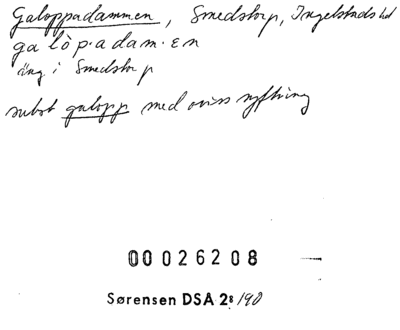 Galoppadammen, Smedstorp, Ingelstads hd
ga lòp·a dam·ɛn
äng i Smedstorp
subst galopp med oviss syftning
00026208
Sørensen DSA 2:8/190